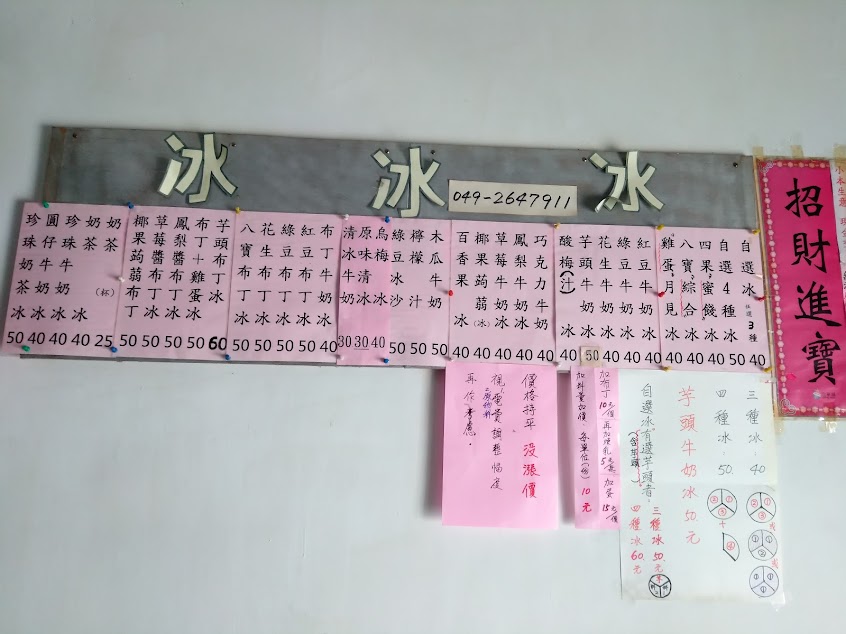 冰 冰 冰
049-2647911
招財進寶
自選冰 任選3種 40
自選4種冰 50
四果.蜜餞冰 40
八寶.綜合冰 40
雞蛋.月見冰 40
紅豆牛奶冰 40
綠豆牛奶冰 40
花生牛奶冰 40
芋頭牛奶冰 50
酸梅(汁)冰 40
巧克力牛奶冰 40
鳳梨牛奶冰 40
草莓牛奶冰 40
椰果蒟蒻(冰) 40
百香果冰 40
木瓜牛奶 50
檸檬汁 50
綠豆冰沙 50
烏梅冰 30
原味清冰 30
清冰牛奶 30
布丁牛奶冰 40
紅豆布丁冰 50
綠豆布丁冰 50
花生布丁冰 50
八寶布丁冰 50
芋頭布丁冰 60
布丁+雞蛋冰 50
鳳梨醬布丁冰 50
草莓醬布丁冰 50
椰果蒟蒻布丁冰 50
奶茶(杯) 25
奶茶冰 40
珍珠牛奶冰 40
圓仔牛奶冰 40
珍珠奶茶冰 50
三種冰.40
四種冰.50
芋頭牛奶冰50.元
自選冰有選芋頭者,
(含芋頭)
三種冰50.元
四種冰60.元
加布丁10元/個 再加煉乳5元 加蛋15元/個
加料費加價 各單位(份)10元
價格持平 沒漲價
視電費調整幅度
再作考慮.